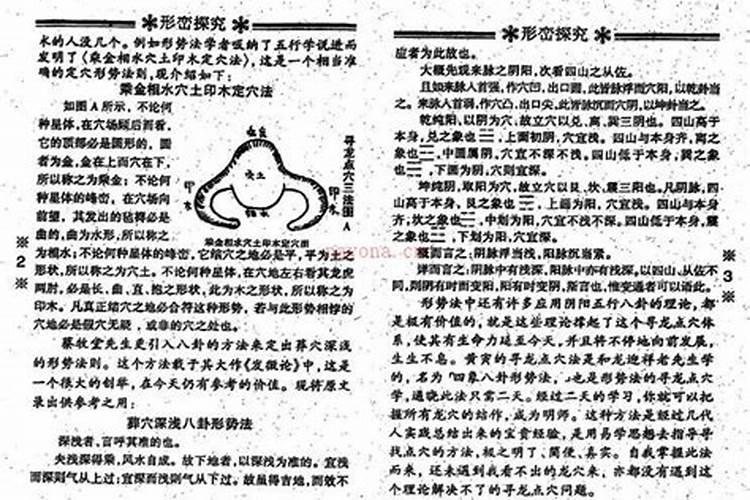 ✻形峦探究✻
水的人没几个。例如形势法学者吸纳了五行学说进而
发明了《乘金相水穴土印木定穴法》,这是一个相当准
确的定穴形势法则,现介绍如下:
乘金相水穴土印木定穴法
如图A所示,不论何
种星体,在穴场顾后而看,
它的顶部必是圆形的,圆
者为金,金在上而穴在下,
所以称之为乘金;不论何
种星体的峰峦,在穴场向
前望,其发出的毡褥必是
曲的,曲为水形,所以称之
为相水;不论何种星体的峰峦,它结穴之地必是平,平为土之
形状,所以称之为穴土。不论何种星体,在穴地左右看其龙虎
两肘,必是长、曲、直、抱之形状,此为木之形状,所以称之为
印木。凡真正结穴之地必合符这种形势,若与此形势相悖的
穴地必是假穴无疑,或非的穴之处也。
蔡牧堂先生更引入八卦的方法来定出葬穴深浅
的形势法则。这个方法载于其大作《发微论》中,这是
一个很大的创举,在今天仍有参考的价值。现将原文
录出供参考之用:
葬穴深浅八卦形势法
深浅者,言呼其准的也。
夫浅深得乘,风水自成。故下地者,以深浅为准的。宜浅
而深则气从上过;宜深而浅则气从下过。故虽得吉地,而效不
穴土
印木
印木
寻龙点穴三法图A
乘金相水穴土印木定穴图
※2※
✻形峦探究✻
应者为此故也。
大概先观来脉之阴阳,次看四山之从佐。
且如来脉入首强,作穴凹,出口圆,此皆脉浮而穴阳,以乾卦当
之。来脉入首弱,作穴凸,出口尖,此皆脉沉而穴阴,以坤卦当之。
乾纯阳,以阴为穴,故立穴以兑、离、巽三阴也。四山高于
本身,兑之象也☱,上画初阴,穴宜浅。四山与本身齐,离之
象也☲,中画属阴,穴宜不深不浅。四山低于本身,巽之象
也☴,下画为阴,穴则宜深。
坤纯阴,取阳为穴,故立穴以艮、坎、震三阳也。凡阴脉,四
山高于本身,艮之象也☶,上画为阳,穴宜浅。四山与本身
齐;坎之象也☵,中划为阳,穴宜不浅不深。四山低于本身,震
之象也☳,下划为阳,穴宜深。
概而言之:阴脉浮当浅,阳脉沉当深。
详而言之:阴脉中有浅深,阳脉中亦有浅深,以四山、从佐不
同,则阴有时而变阳,阳有时变阴,斯言也,惟变通者可以语此。
形势法中还有许多应用阴阳五行八卦的理论,都
是极有价值的,就是这些理论撑起了这个寻龙点穴体
系,使其有生命力延至今天,并且将不停地向前发展,
生生不息。黄寅的寻龙点穴法是和龙迎祥老先生学
的,名为“四象八卦形势法”,也是形势法的寻龙点穴
学,通晓此法只需二天。经过二天的学习,你就可以把
握所有龙穴的结作,成为明师。这种方法是经过几代
人实践总结出来的宝贵经验,是用易学思想去指导寻
找点穴的方法,极之明了、简便、真实。自我掌握此法
而来,还未遇到我看不出的龙穴来,亦都没有遇到这
个理论解决不了的寻龙点穴问题。
※3※